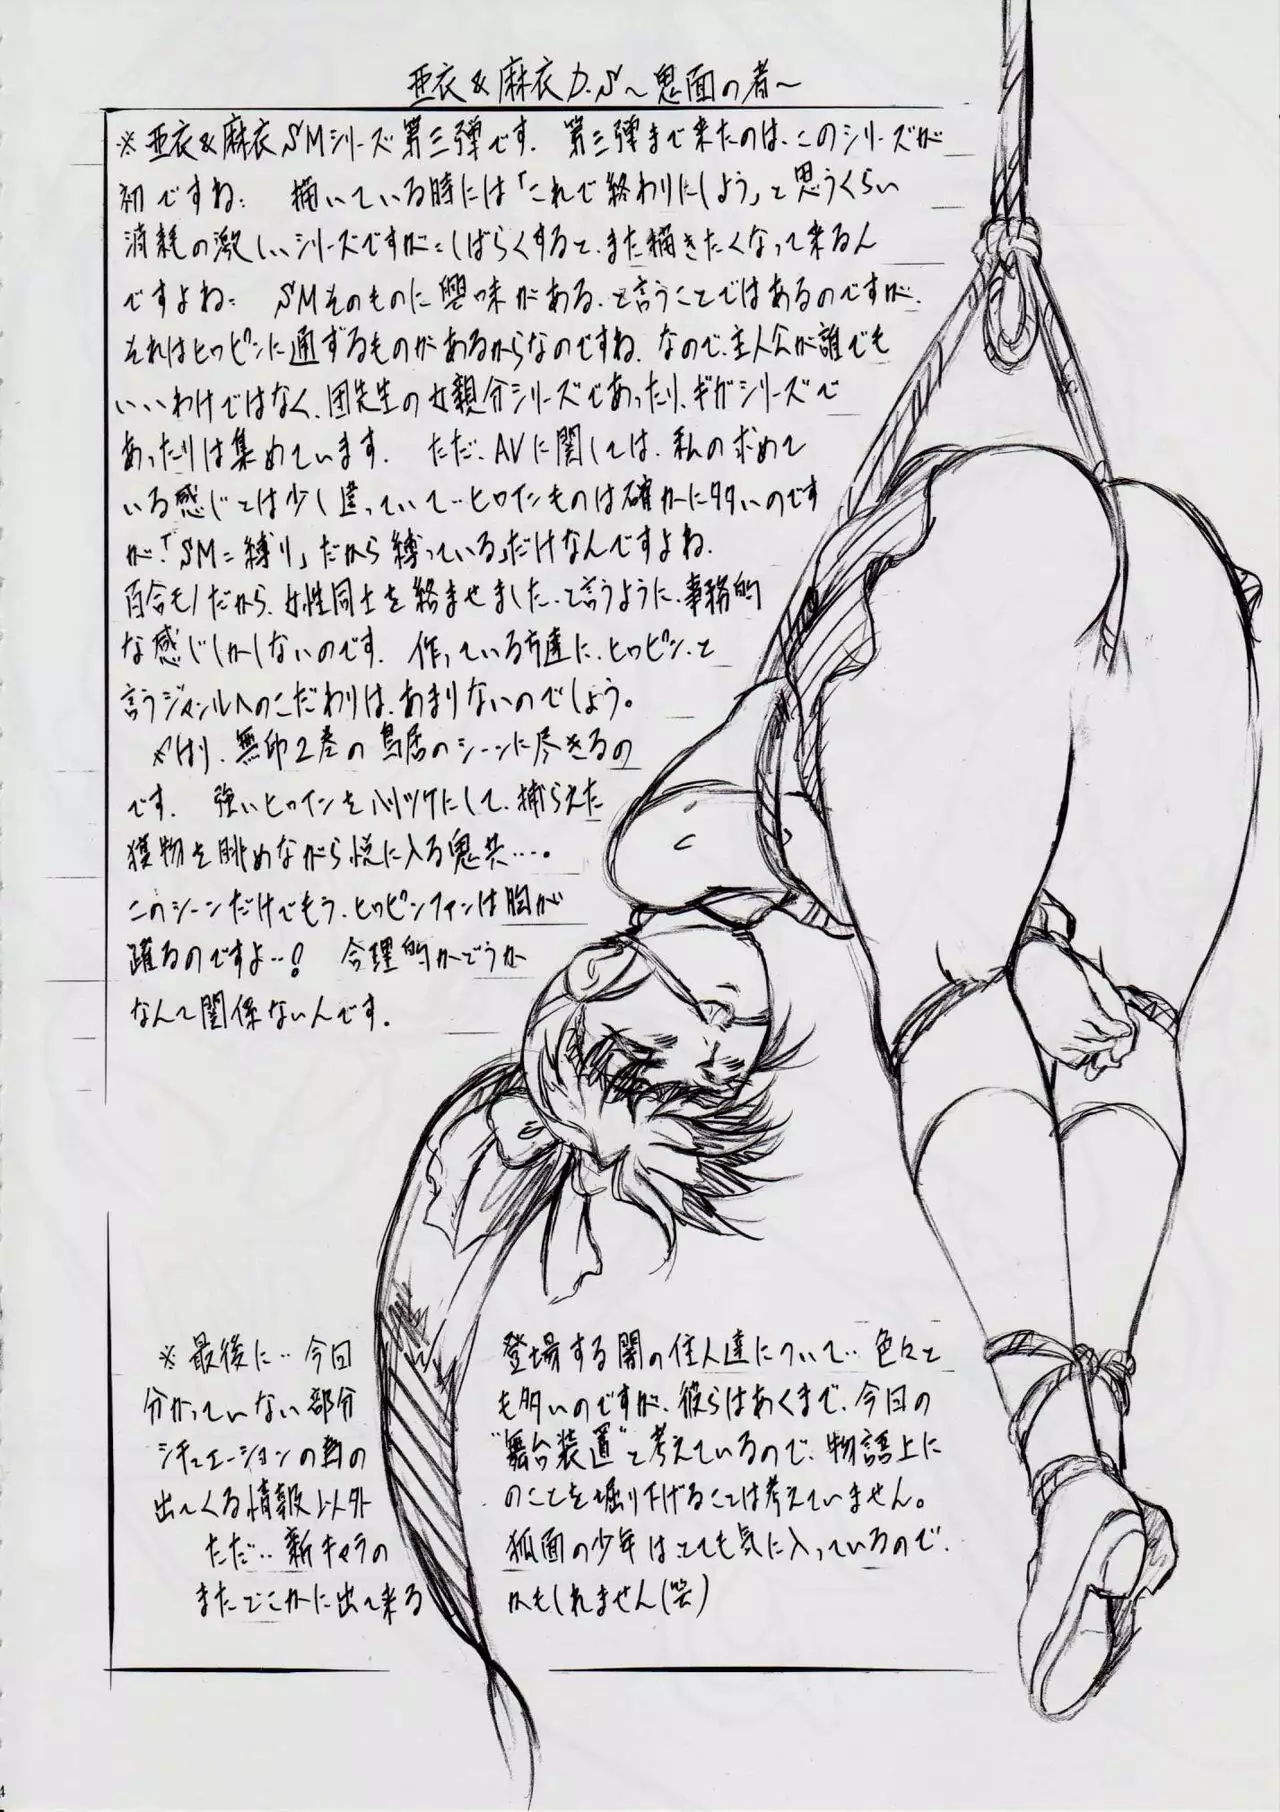 亜衣&麻衣D.S～鬼面の者～
※亜衣&麻衣SMシリーズ第三弾です. 第三弾まで来たのは、このシリーズが
初ですね: 描いている時には「これで終わりにしよう」と思うくらい
消耗の激しいシリーズですが:しばらくすると、また描きたくなって来るん
ですよね: SMそのものに興味がある、と言うことではあるのですが、
それはヒロピンに通ずるものがあるからなのですね、なので、主人公が誰でも
いいわけではなく、団先生の女親分シリーズであったり、ギガシリーズで
あったりは集めています. ただ、AVに関しては、私の求めて
いる感じとは少し違っていて‥ヒロインものは確かに多いのです
が「SM=縛り」だから縛っている」だけなんですよね.
百合モノだから、女性同士を絡ませました、と言うように、事務的
な感じしかしないのです. 作っている方達に、ヒロピン、と
言うジャンルへのこだわりは、あまりないのでしょう。
やはり、無印2巻の鳥居のシーンに尽きるの
です. 強いヒロインをハリツケにして、捕らえた
獲物を眺めながら悦に入る鬼共‥‥.
このシーンだけでもう、ヒロピンファンは胸が
躍るのですよ‥! 合理的かどうか
なんて関係ないんです.
※最後に‥今回登場する闇の住人達について‥色々と
分かっていない部分も多いのですが、彼らはあくまで、今回の
シチュエーションの為の"舞台装置"と考えているので、物語上に
出てくる情報以外のことを堀り下げることは考えていません。
ただ‥新キャラの狐面の少年はとても気に入っているので、
またどこかに出て来るかもしれません(笑)
4